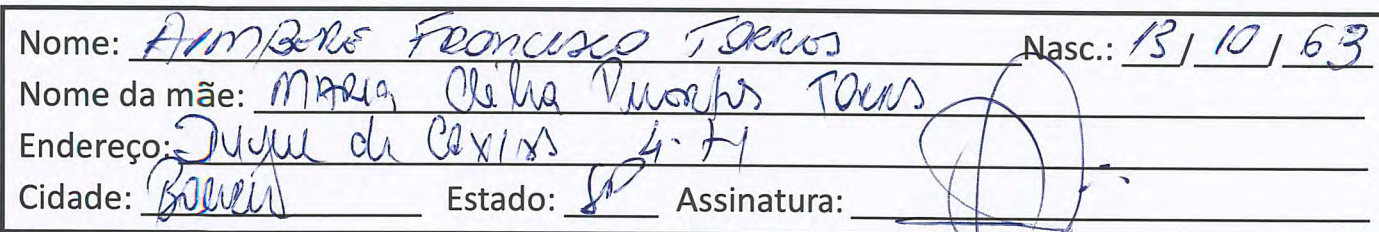 Nome: AIMBERE FRANCISCO TORRES Nasc.: 13/ 10 / 63
Nome da mãe: MARIA Clélia TORRES
Endereço: Duque de Caxias 4-71
Cidade: Bauru Estado: SP Assinatura: